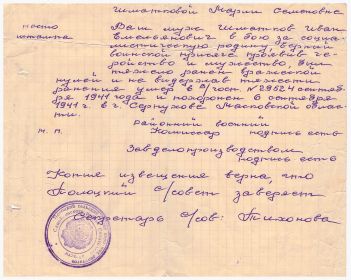 Игнатковой Марии Семеновне
Ваш муж Игнатков Иван
Емельянович в бою за социа-
листическую родину, верный
воинской присяге проявив ге-
ройство и мужество, был
тяжело ранен вражеской
пулей и не выдержав тяжести
ранения умер в э/гост. №2952 4 сентяб-
ря 1941 года и похоронен 6 сентяб-
ря 1941 в г. Серпухове Московской облас-
ти.
Районный военный
м. п. Комиссар подпись есть
Зав делопроизводством
подпись есть
Копия извещения верна, что
Полоцкий с/совет заверяет
Секретарь с/сов: Тихонова